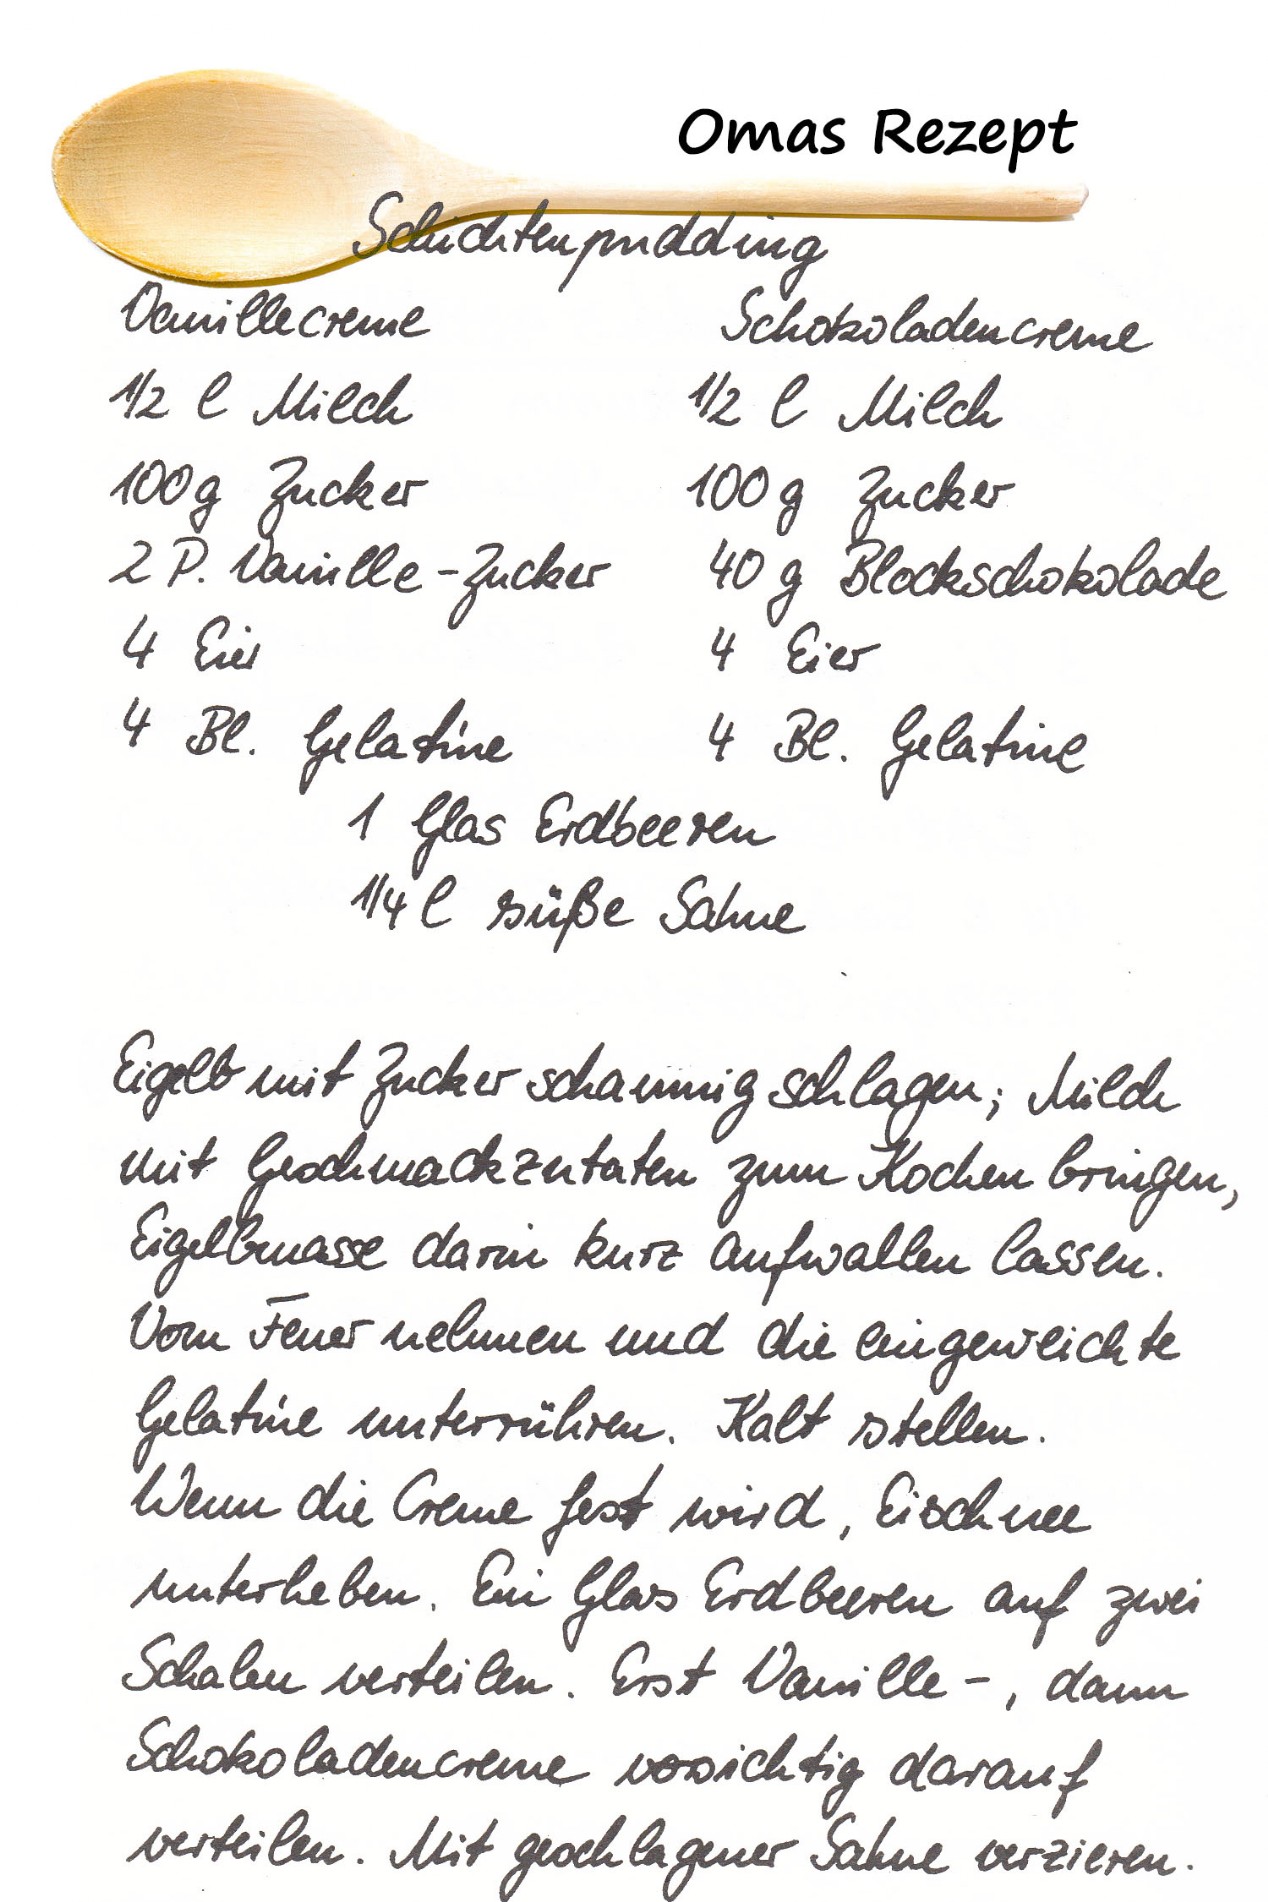 Omas Rezept
Schichtenpudding
Vanillecreme Schokoladencreme
1/2 l Milch 1/2 l Milch
100g Zucker 100 g Zucker
2 P. Vanille-Zucker 40 g Blockschokolade
4 Eier 4 Eier
4 Bl. Gelatine 4 Bl. Gelatine
1 Glas Erdbeeren
1/4 l süße Sahne
Eigelb mit Zucker schaumig schlagen; Milch
mit Geschmackzutaten zum Kochen bringen,
Eigelbmasse darin kurz aufwallen lassen.
Vom Feuer nehmen und die eingeweichte
Gelatine unterrühren. Kalt stellen.
Wenn die Creme fest wird, Eischnee
unterheben. Ein Glas Erdbeeren auf zwei
Schalen verteilen. Erst Vanille-, dann
Schokoladencreme vorsichtig darauf
verteilen. Mit geschlagener Sahne verzieren.